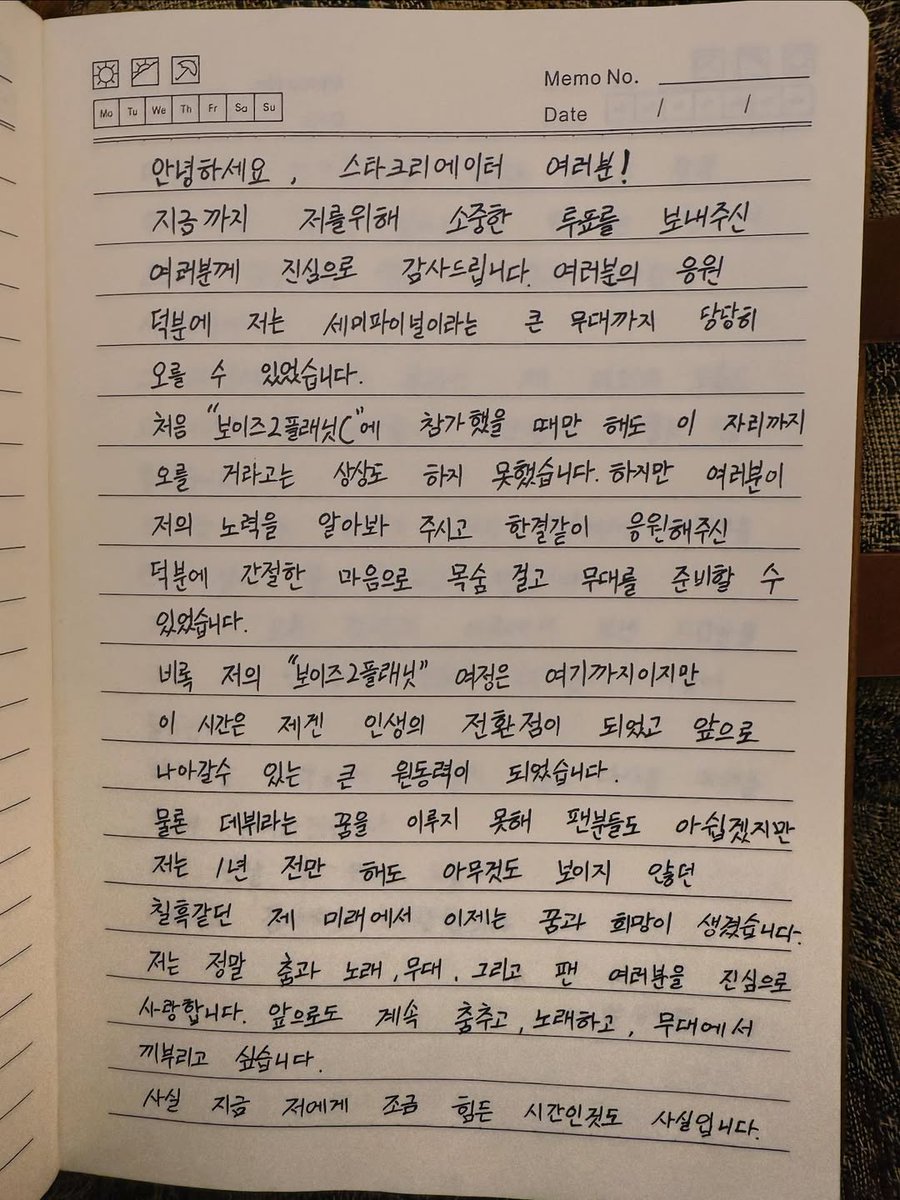 Memo No.
Mo Tu We Th Fr Sa Su
Date / /
안녕하세요, 스타크리에이터 여러분!
지금까지 저를위해 소중한 투표를 보내주신
여러분께 진심으로 감사드립니다. 여러분의 응원
덕분에 저는 세미파이널이라는 큰 무대까지 당당히
오를 수 있었습니다.
처음 "보이즈2플래닛C"에 참가했을 때만 해도 이 자리까지
오를 거라고는 상상도 하지 못했습니다. 하지만 여러분이
저의 노력을 알아봐 주시고 한결같이 응원해주신
덕분에 간절한 마음으로 목숨 걸고 무대를 준비할 수
있었습니다.
비록 저의 "보이즈2플래닛" 여정은 여기까지이지만
이 시간은 제겐 인생의 전환점이 되었고 앞으로
나아갈수 있는 큰 원동력이 되었습니다.
물론 데뷔라는 꿈을 이루지 못해 팬분들도 아쉽겠지만
저는 1년 전만 해도 아무것도 보이지 않던
칠흑같던 제 미래에서 이제는 꿈과 희망이 생겼습니다.
저는 정말 춤과 노래, 무대, 그리고 팬 여러분을 진심으로
사랑합니다. 앞으로도 계속 춤추고, 노래하고, 무대에서
끼부리고 싶습니다.
사실 지금 저에게 조금 힘든 시간인것도 사실입니다.